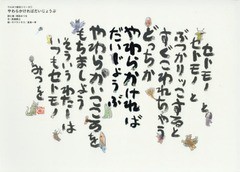 やわらかければだいじょうぶ
セトモノと
セトモノと
ぶつかりッこすると
すぐこわれちゃう
どっちか
やわらかければ
だいじょうぶ
やわらかいこころを
もちましょう
そういうわたしは
いつもセトモノ
みつを